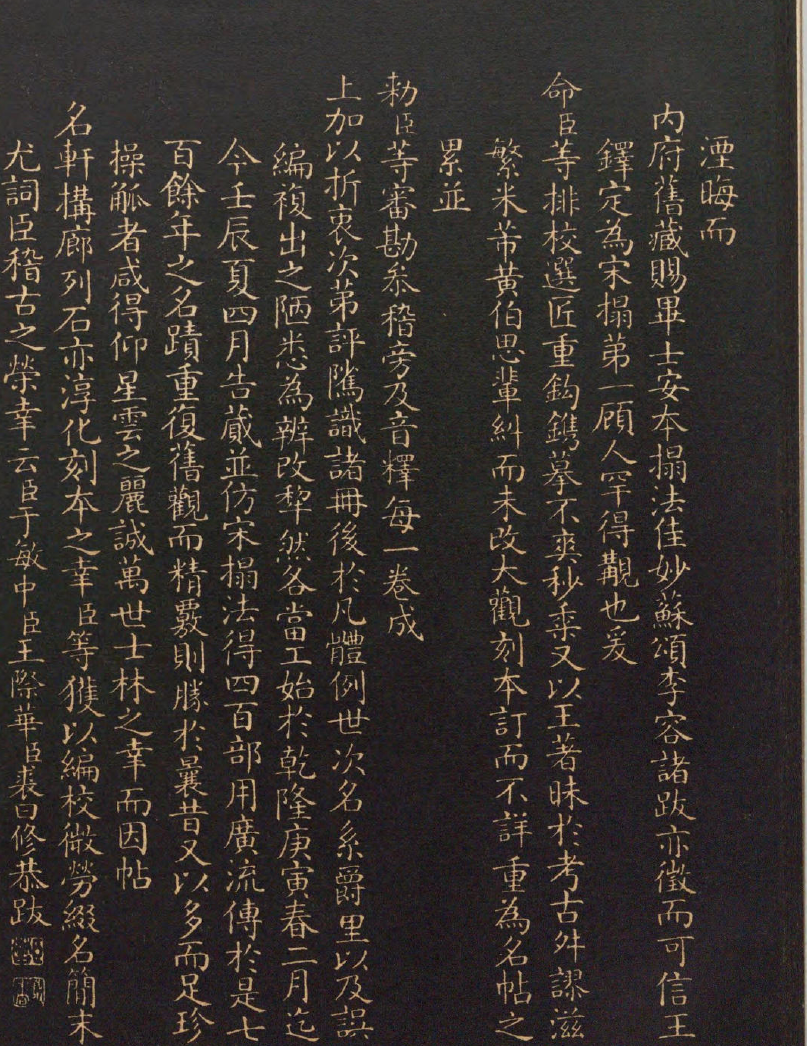 湮晦而
內府舊藏賜畢士安本搨法佳妙蘇頌李容諸跋亦徵而可信王
鐸定為宋搨第一顧人罕得覯也爰
命臣等排校選匠重鈎鐫摹不爽秒黍又以王著昧於考古舛謬滋
繁米芾黃伯思輩糾而未改大觀刻本訂而不詳重為名帖之
累並
勑臣等審勘叅稽旁及音釋每一卷成
上加以折衷次第評隲識諸冊後於凡體例世次名系爵里以及誤
編複出之陋悉為辨改犂然各當工始於乾隆庚寅春二月迄
今壬辰夏四月告蕆並仿宋搨法得四百部用廣流傳於是七
百餘年之名蹟重復舊觀而精覈則勝於曩昔又以多而足珍
操觚者咸得仰星雲之麗誠萬世士林之幸而因帖
名軒構廊列石亦淳化刻本之幸臣等獲以編校微勞綴名簡末
尤詞臣稽古之榮幸云臣于敏中臣王際華臣裘曰修恭跋